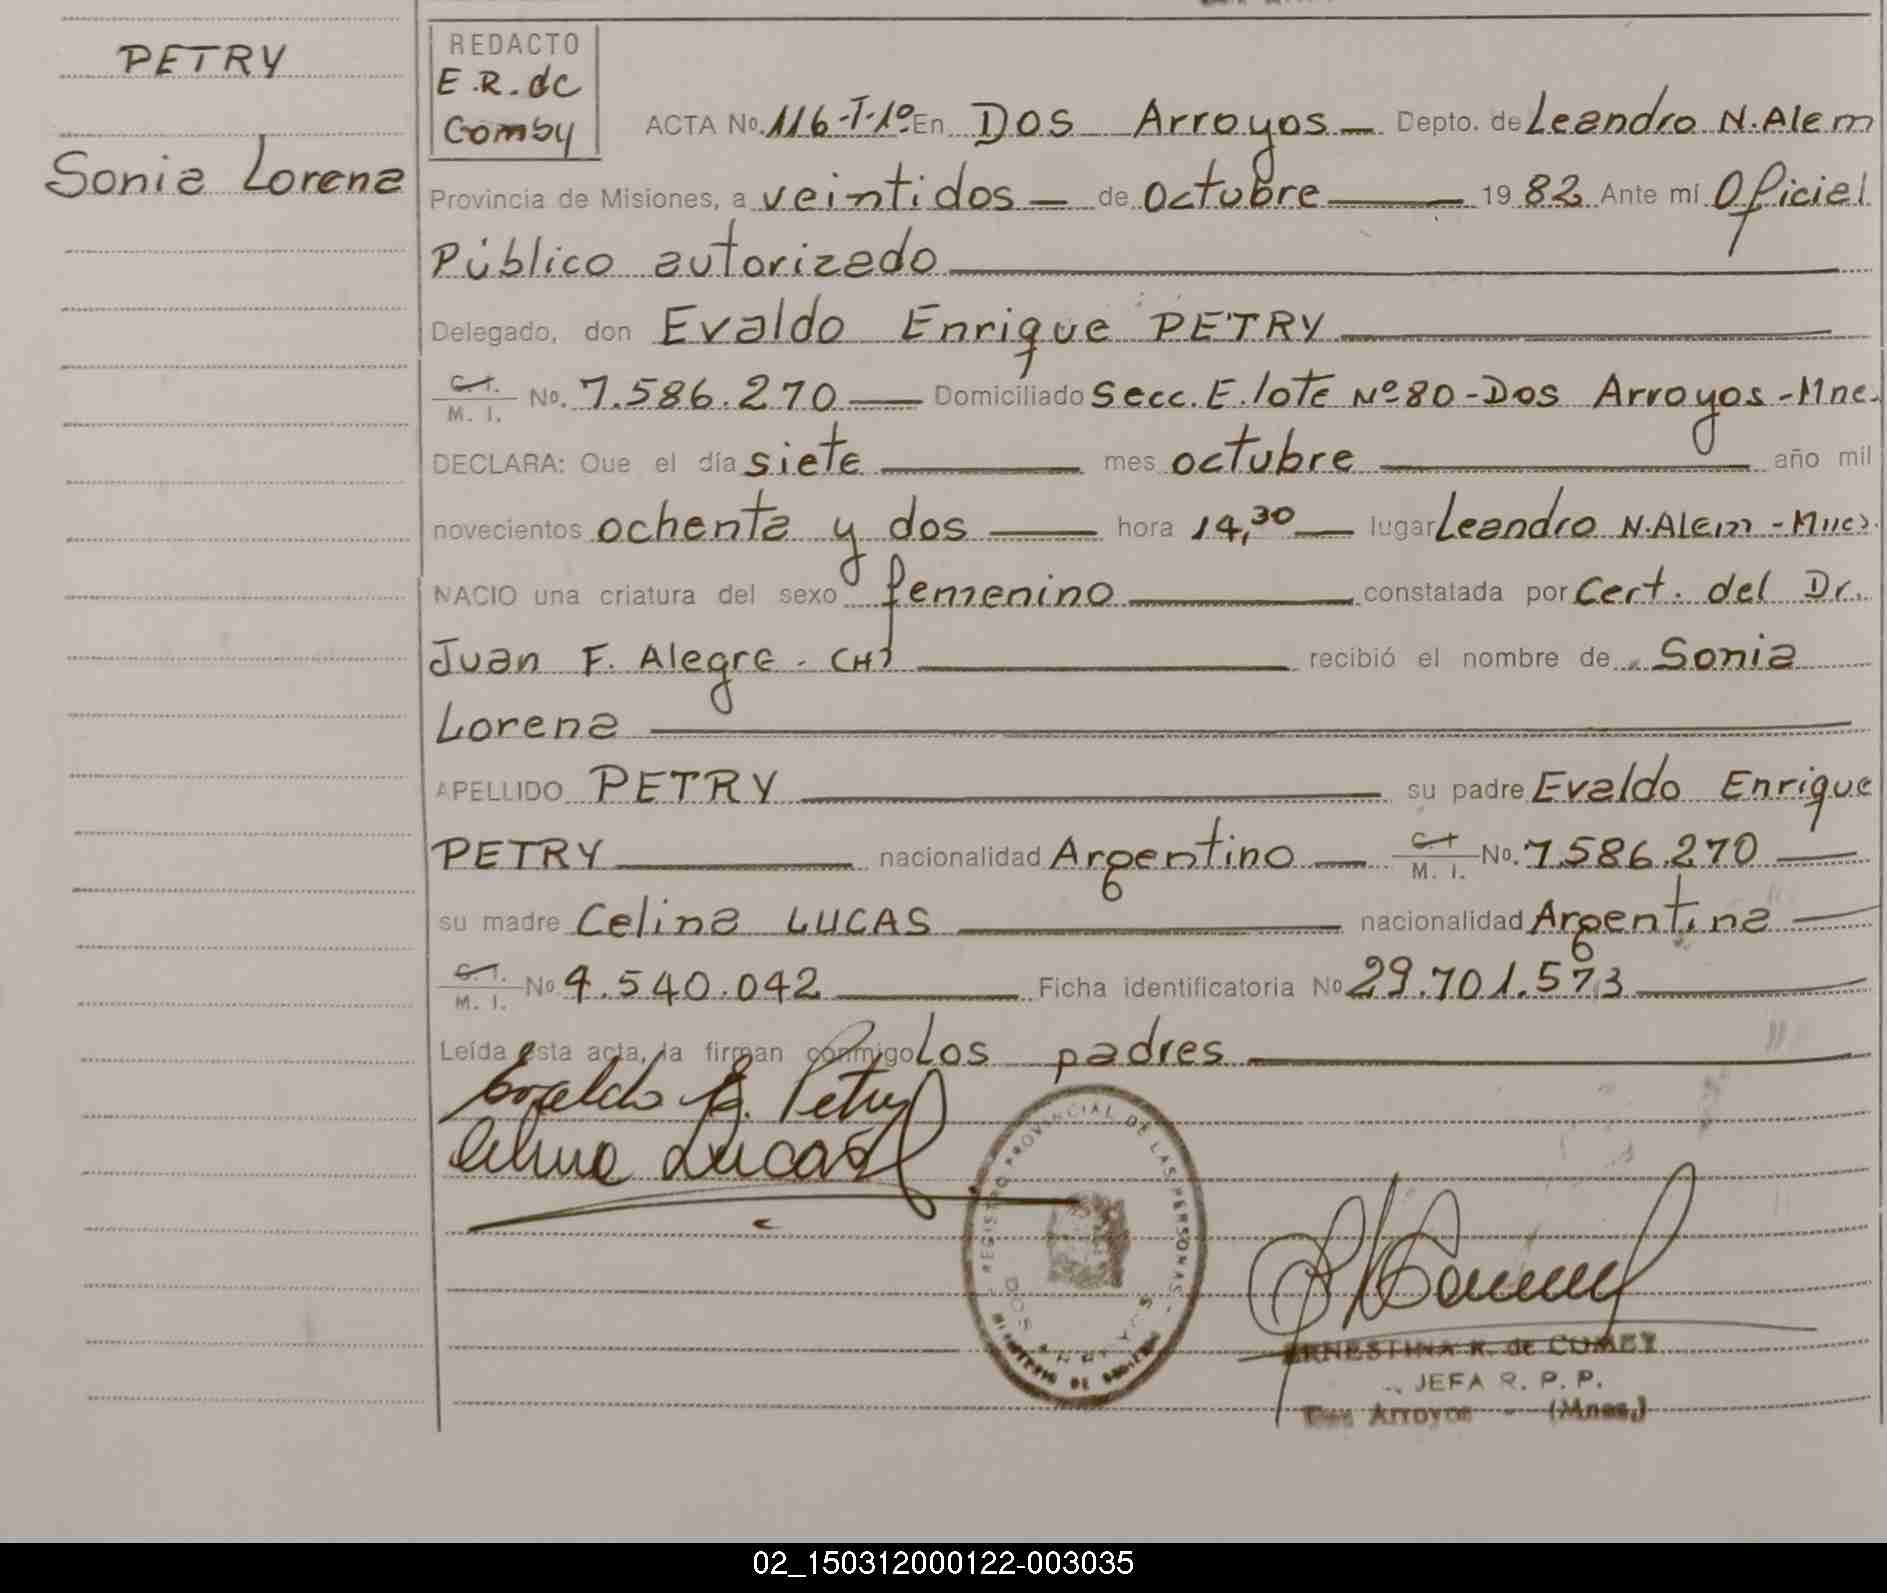 PETRY
Sonia Lorena
REDACTO
E.R. de
Comby
ACTA No. 116-T-1º En Dos Arroyos Depto. de Leandro N. Alem
Provincia de Misiones, a veintidos de Octubre 1982 Ante mí Oficial
Público autorizado
Delegado, don Evaldo Enrique PETRY
C. I. M. I. No. 7.586.270 Domiciliado Secc. E. lote Nº 80 - Dos Arroyos - Mne.
DECLARA: Que el día siete mes octubre año mil
novecientos ochenta y dos hora 14,30 lugar Leandro N. Alem - Mnes.
NACIO una criatura del sexo femenino constatada por Cert. del Dr.
Juan F. Alegre - CH) recibió el nombre de Sonia
Lorena
APELLIDO PETRY su padre Evaldo Enrique
PETRY nacionalidad Argentino C. I. M. I. No. 7.586.270
su madre Celina LUCAS nacionalidad Argentina
C. I. M. I. No 4.540.042 Ficha identificatoria No 29.701.573
Leída esta acta, la firman conmigo Los padres
Evaldo E. Petry
Celina Lucas
REGISTRO PROVINCIAL DE LAS PERSONAS
DOS ARROYOS
MINISTERIO DE GOBIERNO
ERNESTINA R. de COMBY
JEFA R. P. P.
Dos Arroyos - (Mnes.)
02_150312000122-003035